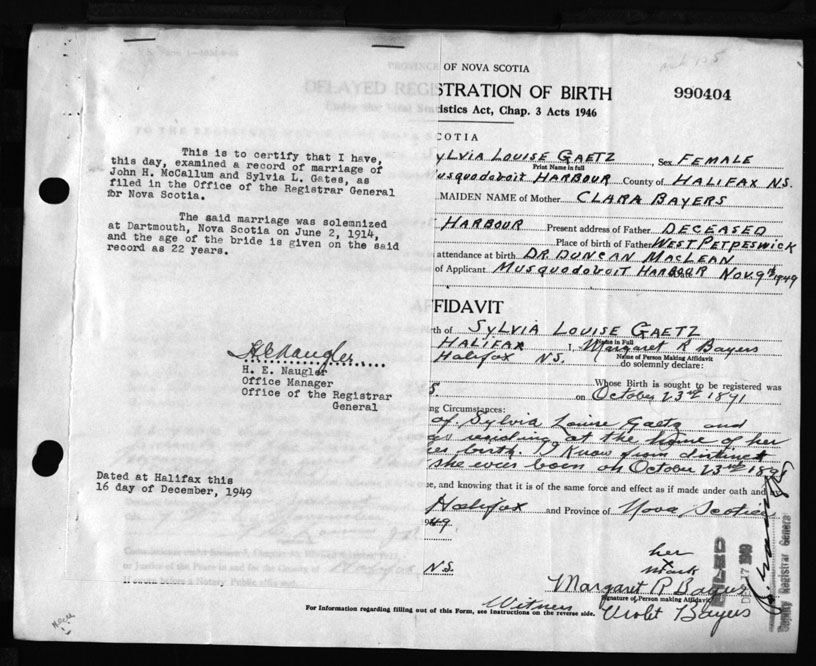 PROVINCE OF NOVA SCOTIA
DELAYED REGISTRATION OF BIRTH
990404
istics Act, Chap. 3 Acts 1946
This is to certify that I have,
this day, examined a record of marriage of
John H. McCallum and Sylvia L. Gates, as
filed in the Office of the Registrar General
for Nova Scotia.
The said marriage was solemnized
at Dartmouth, Nova Scotia on June 2, 1914,
and the age of the bride is given on the said
record as 22 years.
H. E. Naugler
H. E. Naugler
Office Manager
Office of the Registrar
General
Dated at Halifax this
16 day of December, 1949
COTIA
SYLVIA LOUISE GAETZ, Sex FEMALE
Print Name in full
Musquodoboit HARBOUR County of HALIFAX N.S.
MAIDEN NAME of Mother CLARA BAYERS
HARBOUR Present address of Father DECEASED
Place of birth of Father WEST PETPESWICK
attendance at birth DR. DUNCAN MACLEAN
of Applicant MUSQUODOBOIT HARBOUR NOV. 9th 1949
FFIDAVIT
rth of SYLVIA LOUISE GAETZ
Name in Full
HALIFAX I, Margaret R Bayers
Name of Person Making Affidavit
Halifax N.S. do solemnly declare:
5. Whose Birth is sought to be registered was
on October 23rd 1891
ng Circumstances:
of Sylvia Louise Gaetz and
was residing at the home of her
birth. I know from distinct
she was born on October 23rd 1891
e, and knowing that it is of the same force and effect as if made under oath and
Halifax and Province of Nova Scotia
949
N.S.
her
X
mark
Margaret R Bayers
Signature of Person making Affidavit
Witness Violet Bayers
FILED
DEC 17 1949
Deputy Registrar General
For Information regarding filling out of this Form, see Instructions on the reverse side.